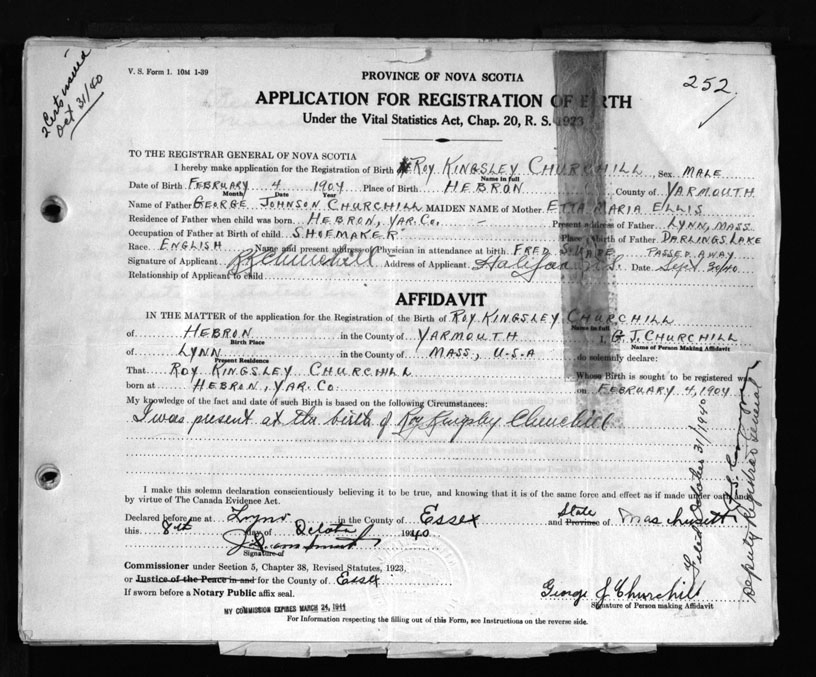 2 Certs issued
Oct 31/40
V. S. Form 1. 10M 1-39
252.
PROVINCE OF NOVA SCOTIA
APPLICATION FOR REGISTRATION OF BIRTH
Under the Vital Statistics Act, Chap. 20, R. S. 1923
TO THE REGISTRAR GENERAL OF NOVA SCOTIA
I hereby make application for the Registration of Birth ROY KINGSLEY CHURCHILL, Sex MALE
Name in full
Date of Birth FEBRUARY 4 1904 Place of Birth HEBRON County of YARMOUTH
Month Date Year
Name of Father GEORGE JOHNSON CHURCHILL MAIDEN NAME of Mother ETTA MARIA ELLIS
Residence of Father when child was born HEBRON, YAR. CO. Present address of Father LYNN, MASS
Occupation of Father at Birth of child SHOEMAKER Place of Birth of Father DARLINGS LAKE
Race ENGLISH Name and present address of Physician in attendance at birth FRED PASSED AWAY
Signature of Applicant RKChurchill Address of Applicant Halifax N.S. Date Sept 30/40
Relationship of Applicant to child
AFFIDAVIT
IN THE MATTER of the application for the Registration of the Birth of ROY KINGSLEY CHURCHILL
Name in full
of HEBRON in the County of YARMOUTH I, G.J. CHURCHILL
Birth Place Name of Person Making Affidavit
of LYNN in the County of MASS., U.S.A do solemnly declare:
Present Residence
That ROY KINGSLEY CHURCHILL Whose Birth is sought to be registered was
born at HEBRON, YAR. CO. on FEBRUARY 4, 1904
My knowledge of the fact and date of such Birth is based on the following Circumstances:
I was present at the birth of Roy Kingsley Churchill
I make this solemn declaration conscientiously believing it to be true, and knowing that it is of the same force and effect as if made under oath and
by virtue of The Canada Evidence Act.
Declared before me at Lynn in the County of Essex and State Province of
this 8th day of 1940
Signature of
Commissioner under Section 5, Chapter 38, Revised Statutes, 1923,
or Justice of the Peace in and for the County of Essex
If sworn before a Notary Public affix seal.
George J Churchill
Signature of Person making Affidavit
MY COMMISSION EXPIRES MARCH 24, 1944
For Information respecting the filling out of this Form, see Instructions on the reverse side.
Filed October 31/1940
Deputy Registrar General